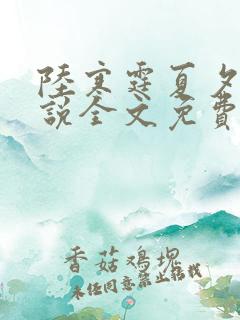 陸寒霆夏夕
說全文免費
香菇鸡塊
未经同意禁止转载